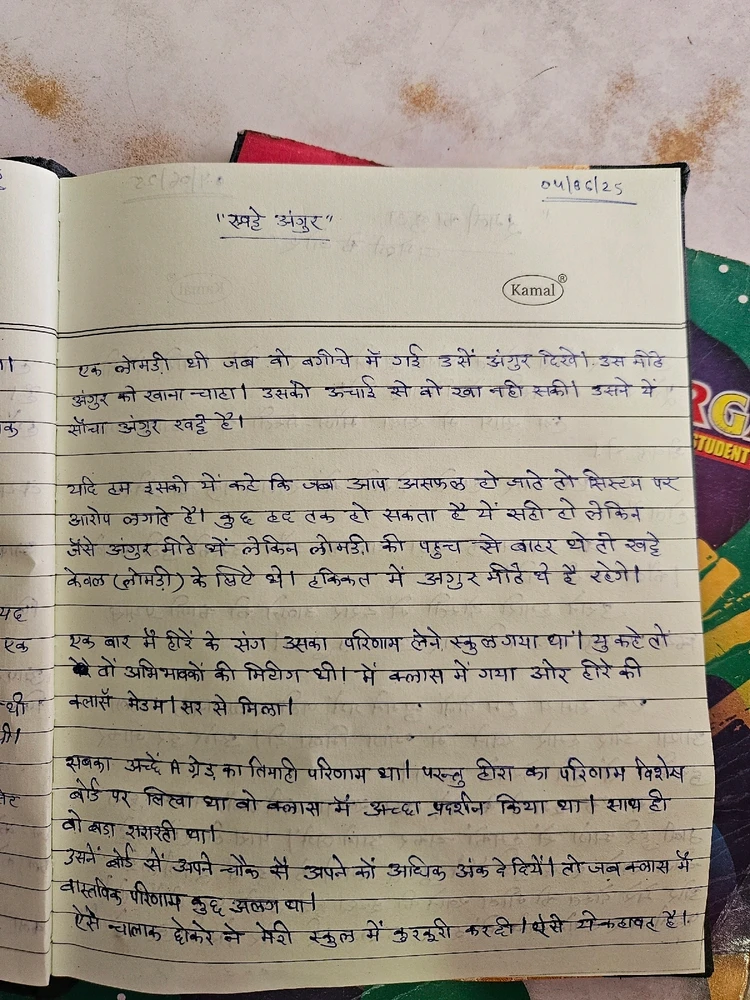 04/06/25
"खट्टे अंगुर"
Kamal®
एक लोमड़ी थी जब वो बगीचे में गई उसें अंगुर दिखे। उस मीठे
अंगुर को खाना चाहा। उसकी ऊचाई से वो खा नही सकी। उसने ये
सोंचा अंगुर खट्टे है।
यदि हम इसको ये कहे कि जब आप असफल हो जाते तो सिस्टम पर
आरोप लगाते है। कुछ हद तक हो सकता है ये सही हो लेकिन
जैसे अंगुर मीठे थे लेकिन लोमड़ी की पहुच से बाहर थे तो खट्टे
केवल (लोमड़ी) के लिए थे। हकिकत में अगुर मीठे थे है रहेगे।
एक बार मैं हीरें के संग उसका परिणाम लेने स्कुल गया था। यु कहे तों
तों अभिभावकों की मिटीग थी। में क्लास में गया ओर हीरे की
क्लासॅ मेडम। सर से मिला।
सबका अच्छे A ग्रेड का तिमाही परिणाम था। परन्तु हीरा का परिणाम विशेष
बोर्ड पर लिखा था वो क्लास में अच्छा प्रदर्शन किया था। साथ ही
वो बडा शरारती था।
उसनें बोर्ड सें अपने चौक सें अपने कों अधिक अंक दे दियें। तो जब क्लास में
वास्तविक परिणाम कुछ अलग था।
ऐसे चालाक छोकरे ने मेरी स्कुल में कुरकुरी कर दी। ऐसे ये कहावत है।
RGA
STUDENT